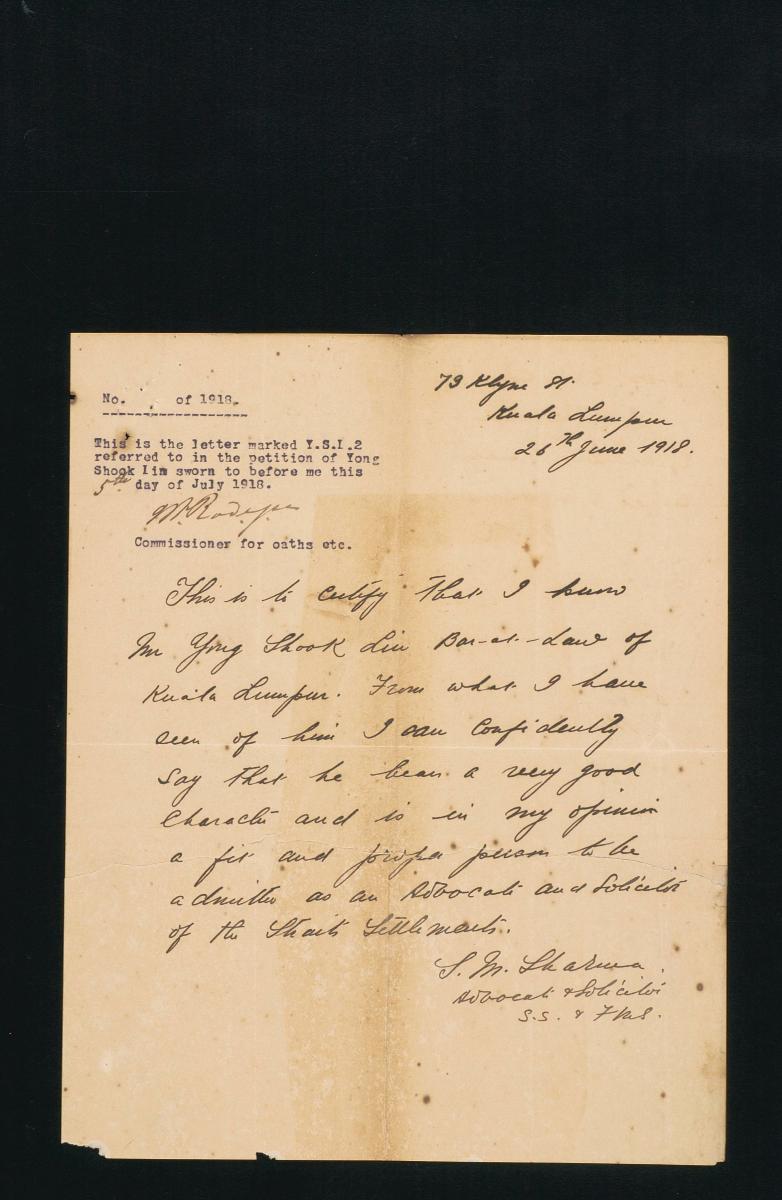 No. of 1918.
This is the letter marked Y.S.I.2
referred to in the petition of Yong
Shook Iin sworn to before me this
5th day of July 1918.
Commissioner for oaths etc.
79 Klyne St.
Kuala Lumpur
26th June 1918.
This is to certify that I know
Mr Yong Shook Lin Bar-at-Law of
Kuala Lumpur. From what I have
seen of him I can confidently
say that he bears a very good
character and is in my opinion
a fit and proper person to be
admitted as an Advocate and Solicitor
of the Straits Settlements.
S. M. Sharma.
Advocate & Solicitor
S.S. & F.M.S.